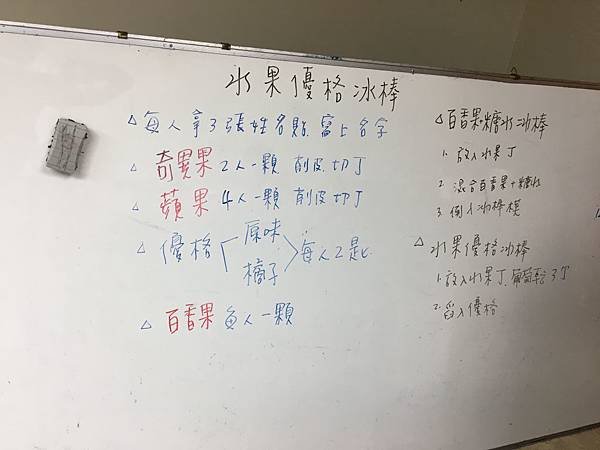 水果優格冰棒
△每人拿3張姓名貼.寫上名字
△奇異果 2人一顆 削皮.切丁
△蘋果 4人一顆 削皮切丁
△優格
原味
橘子
每人2是
△百香果 每人一顆
△百香果糖水冰棒
1.放入水果丁
2.混合百香果+糖水
3.倒入冰棒模
△水果優格冰棒
1.放入水果丁.葡萄乾3个
2.舀入優格